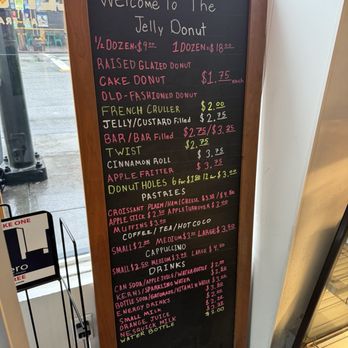 Welcome To The
Jelly Donut
½ DOZEN=$9.00 1 DOZEN=$18.00
RAISED GLAZED DONUT
CAKE DONUT $1.75 each
OLD-FASHIONED DONUT
FRENCH CRULLER $2.00
JELLY/CUSTARD Filled $2.75
BAR/BAR Filled $2.75/$3.25
TWIST $2.75
CINNAMON ROLL $3.75
APPLE FRITTER $3.75
DONUT HOLES 6 For 12 For
PASTRIES
CROISSANT PLAIN/HAM&CHEESE
APPLE STICK APPLE TURNOVER
MUFFINS
COFFEE/TEA/HOT COCO
SMALL MEDIUM LARGE
CAPPUCINO
SMALL MEDIUM LARGE
DRINKS
CAN SODA/APPLE JUICE/WATER BOTTLE
KERNS/SPARKLING WATER
BOTTLE SODA/GATORADE/VITAMIN WATER
ENERGY DRINKS
SMALL MILK
ORANGE JUICE
NESQUICK MILK
WATER BOTTLE
KE ONE